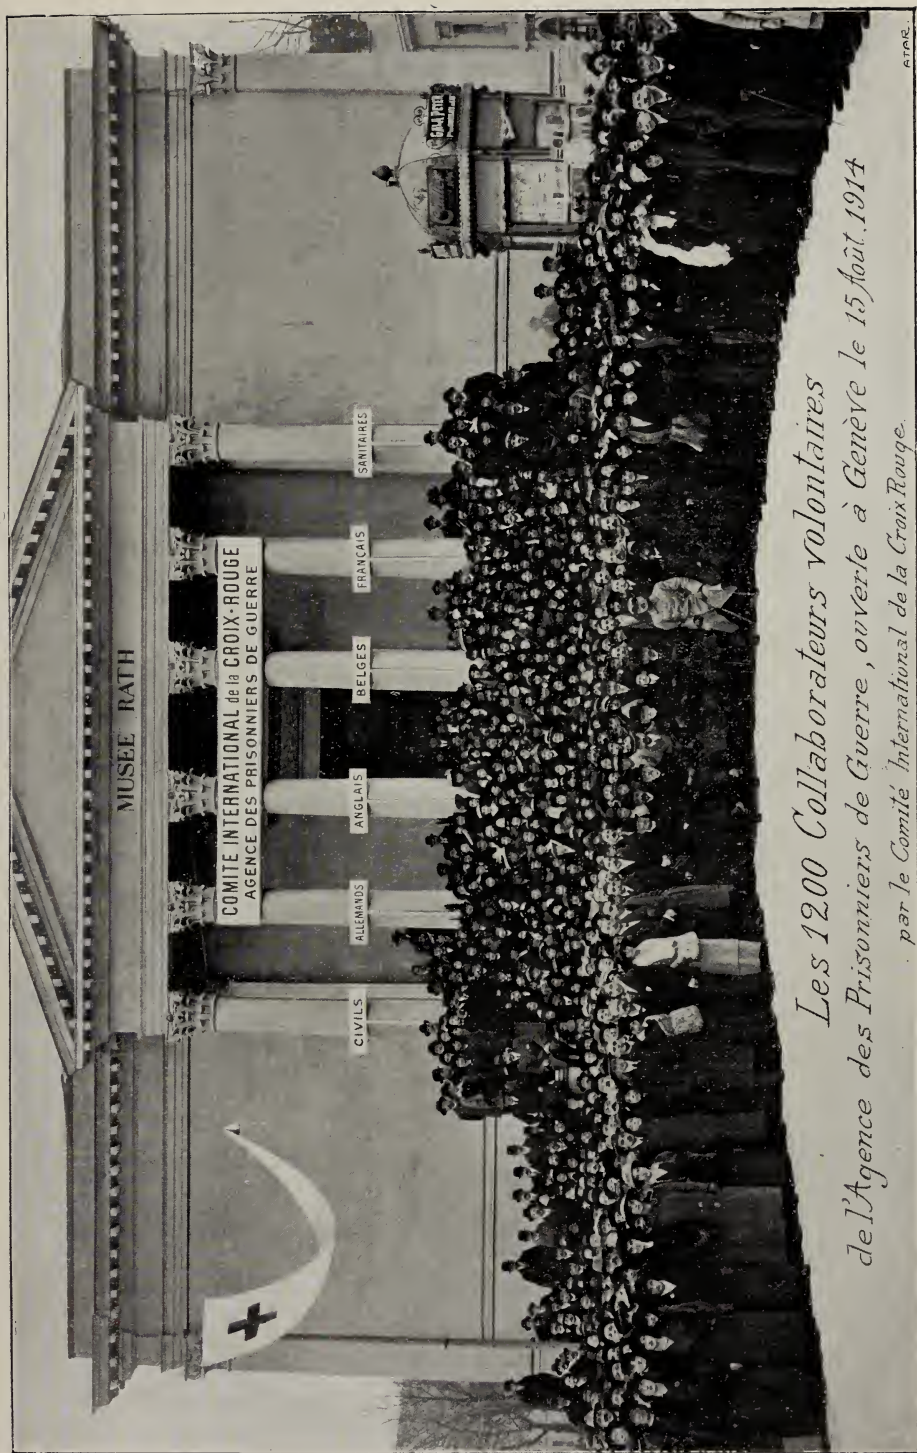 MUSEE RATH
COMITE INTERNATIONAL de la CROIX-ROUGE
AGENCE DES PRISONNIERS DE GUERRE
CIVILS
ALLEMANDS
ANGLAIS
BELGES
FRANÇAIS
SANITAIRES
GALA PETER
Les 1200 Collaborateurs volontaires
de l'Agence des Prisonniers de Guerre, ouverte à Genève le 15 Août.1914
par le Comité International de la Croix Rouge.
ATAR.